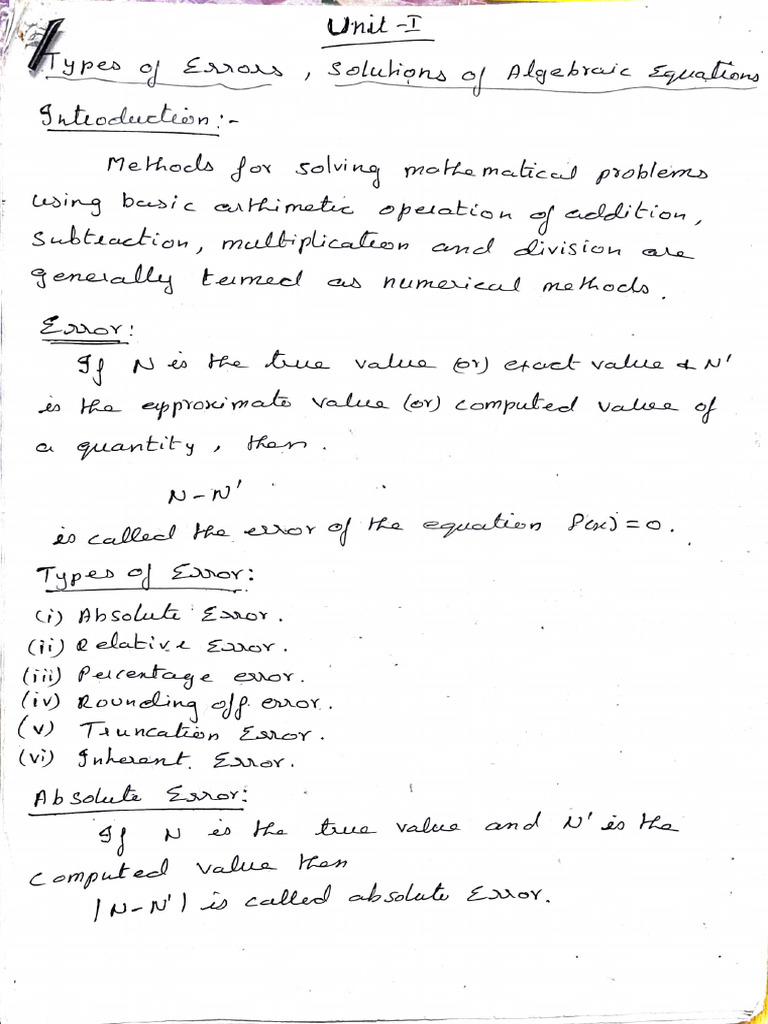 Unit-I
Types of Errors, Solutions of Algebraic Equations
Introduction:-
Methods for solving mathematical problems
using basic arthimetic operation of addition,
Subtraction, multiplication and division are
generally termed as numerical methods.
Error:
If N is the true value (or) exact value & N'
is the approximate value (or) computed value of
a quantity, then.
N-N'
is called the error of the equation f(x)=0.
Types of Error:
(i) Absolute Error.
(ii) Relative Error.
(iii) Percentage error.
(iv) Rounding off error.
(v) Truncation Error.
(vi) Inherent Error.
Absolute Error:
If N is the true value and N' is the
computed value then
|N-N'| is called absolute Error.